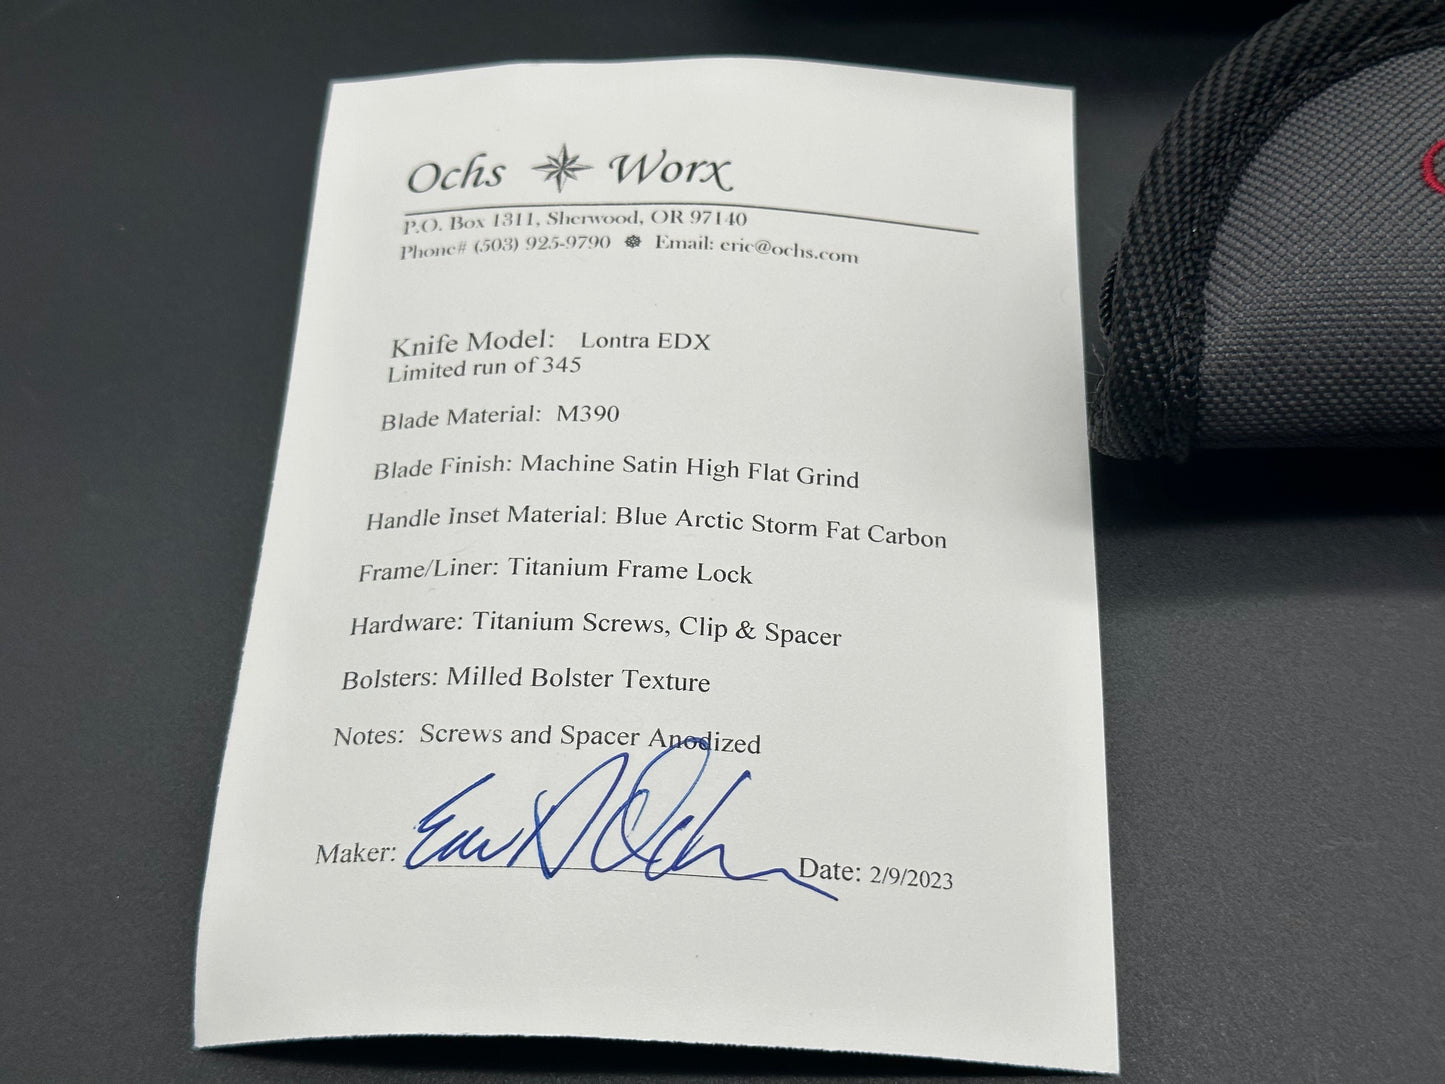 Ochs Worx
P.O. Box 1311, Sherwood, OR 97140
Phone# (503) 925-9790 Email: eric@ochs.com
Knife Model: Lontra EDX
Limited run of 345
Blade Material: M390
Blade Finish: Machine Satin High Flat Grind
Handle Inset Material: Blue Arctic Storm Fat Carbon
Frame/Liner: Titanium Frame Lock
Hardware: Titanium Screws, Clip & Spacer
Bolsters: Milled Bolster Texture
Notes: Screws and Spacer Anodized
Maker: Date: 2/9/2023